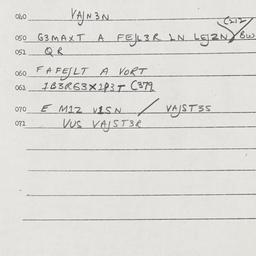 040 VAJN3N
C212
050 G3MAXT A FEJL3R LN LEJ2N/BW
051 QR
060 FAFEJLT A VORT
061 1B3RG3X1P3T C379
070 E M12 V1SN / VAJST55
071 VUS VAJST3R